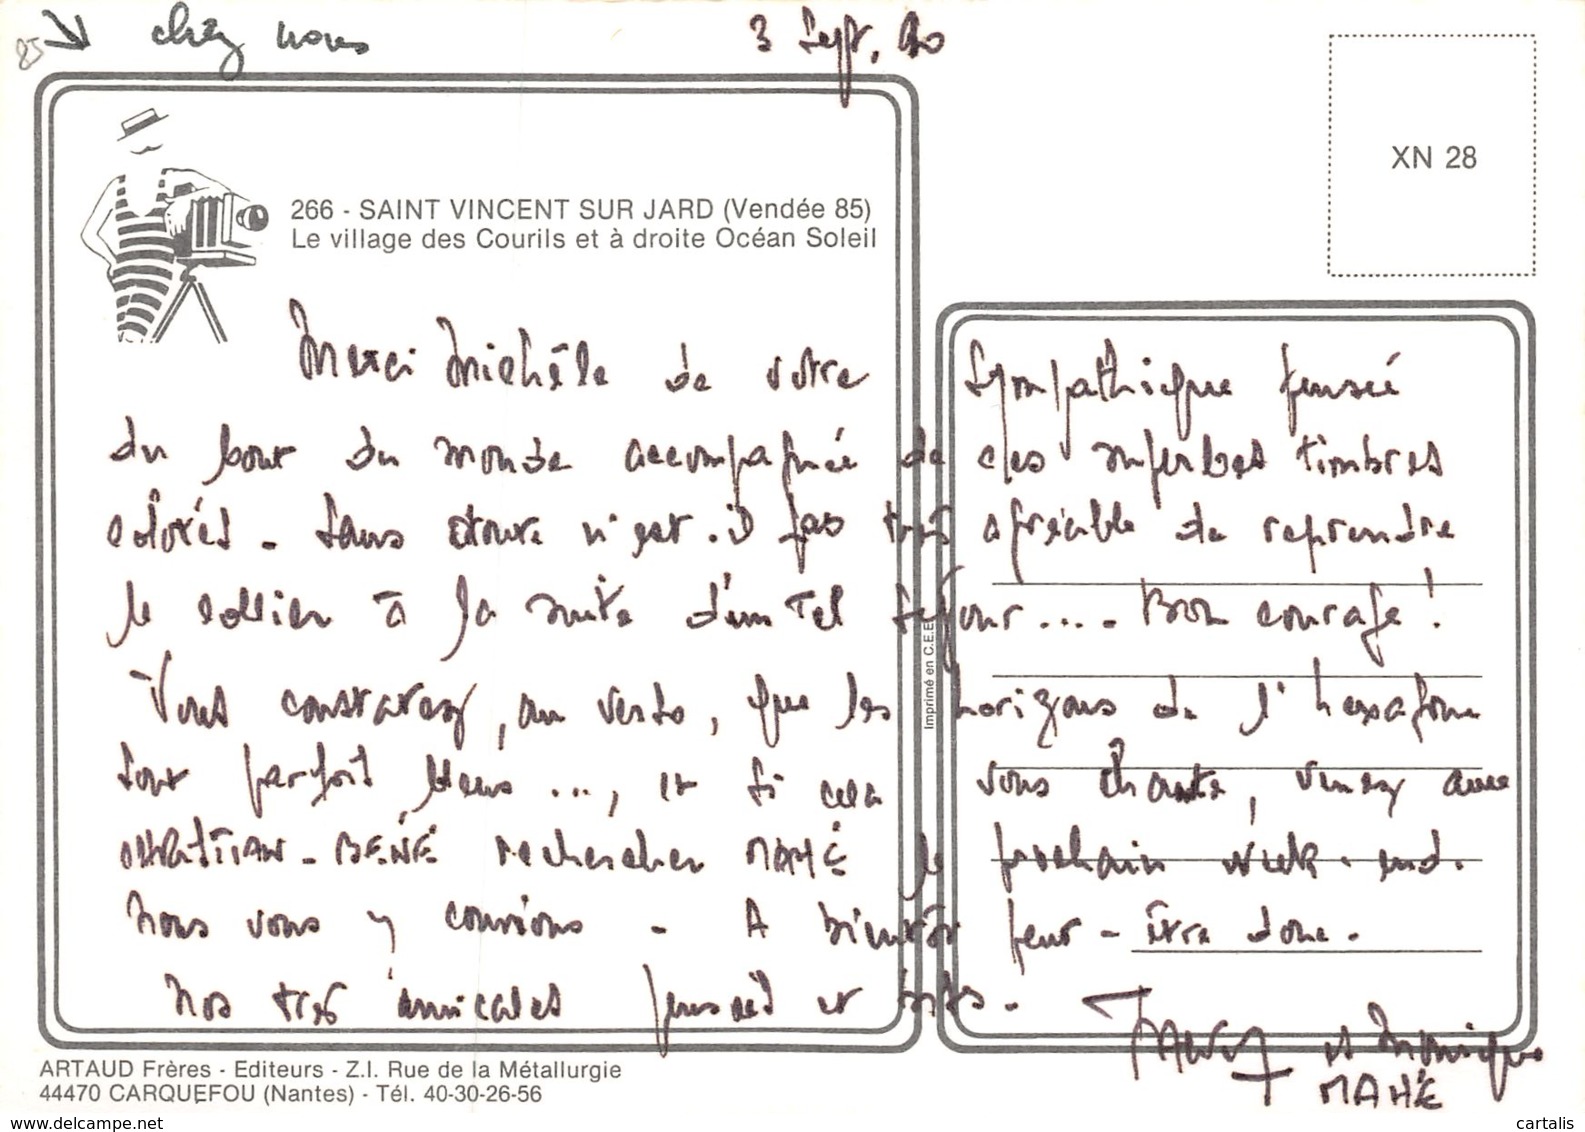 85
chez nous
3 Sept. 90
XN 28
266 - SAINT VINCENT SUR JARD (Vendée 85)
Le village des Courils et à droite Océan Soleil
Merci Michèle de votre sympathique pensée
du bout du monde accompagnée de ces superbes timbres
colorés - Sans doute n'est-il pas très agréable de reprendre
le collier à la suite d'un tel séjour .... Bon courage !
Vous constatez, au verso, que les horizons de l'hexagone
sont parfois bleus ..., et si cela vous chante, venez avec
BÉNÉ rechercher MAHÉ le prochain week-end.
Nous vous y convions - A bientôt peut-être donc.
Nos très amicales pensées et bises.
et Monique
MAHÉ
Imprimé en C.E.E.
ARTAUD Frères - Editeurs - Z.I. Rue de la Métallurgie
44470 CARQUEFOU (Nantes) - Tél. 40-30-26-56
www.delcampe.net
cartalis